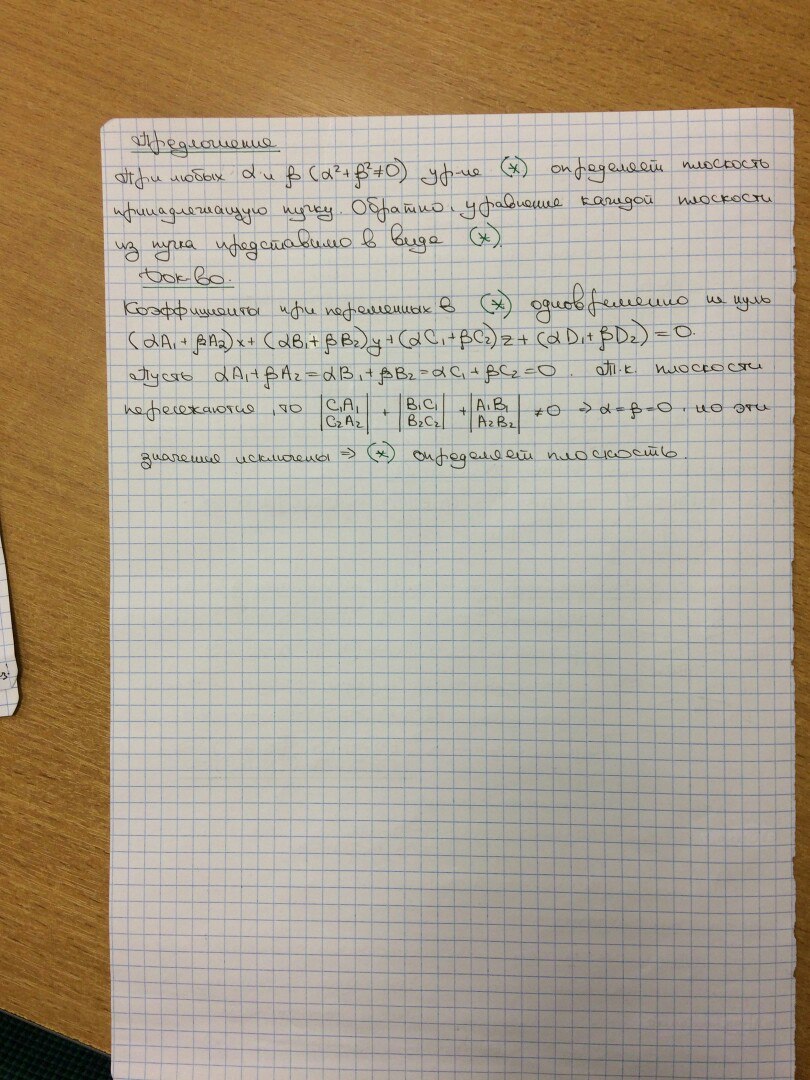 Предложение
При любых α и β (α²+β²≠0) ур-ие (*) определяет плоскость
принадлежащую пучку. Обратно, уравнение каждой плоскости
из пучка представимо в виде (*).
Док-во.
Коэффициенты при переменных в (*) одновременно не нуль
(αA₁+βA₂)x+(αB₁+βB₂)y+(αC₁+βC₂)z+(αD₁+βD₂)=0.
Пусть αA₁+βA₂=αB₁+βB₂=αC₁+βC₂=0. Т.к. плоскости
пересекаются, то |C₁A₁ C₂A₂| + |B₁C₁ B₂C₂| + |A₁B₁ A₂B₂| ≠0 ⇒ α=β=0, но эти
значения исключены ⇒ (*) определяет плоскость.